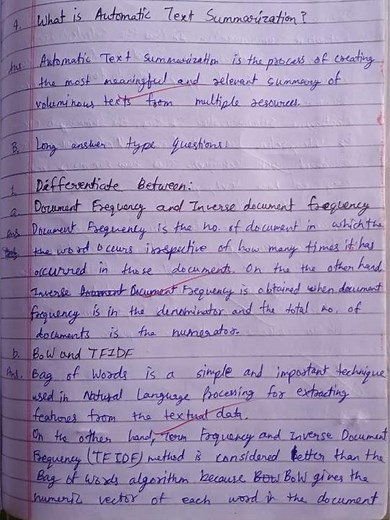 4. What is Automatic Text Summarization?
Ans. Automatic Text Summarization is the process of creating
the most meaningful and relevant summary of
voluminous texts from multiple resources.
B. Long answer type questions:
1. Differentiate Between:
a. Document Frequency and Inverse document frequency
Ans Document Frequency is the no. of document in which the
the word occurs irrespective of how many times it has
occurred in those documents. On the the other hand
Inverse Document Frequency is obtained when document
frequency is in the denominator and the total no. of
documents is the numerator.
b. BoW and TFIDF
Ans. Bag of Words is a simple and important technique
used in Natural Language Processing for extracting
features from the textual data.
On the other hand, Term Frequency and Inverse Document
Frequency (TFIDF) method is considered better than the
Bag of Words algorithm because BoW gives the
numeric vector of each word in the document